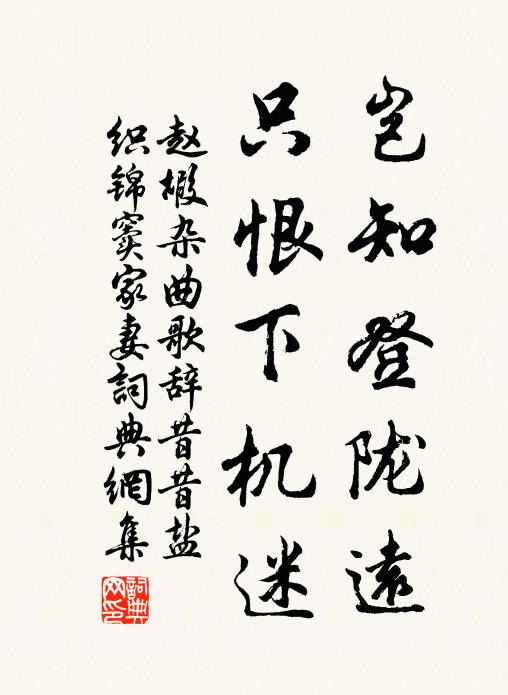 岂知登陇遠
只恨下机迷
赵嘏杂曲歌辞昔昔盐
织锦窦家妻詞典網集
詞典網印